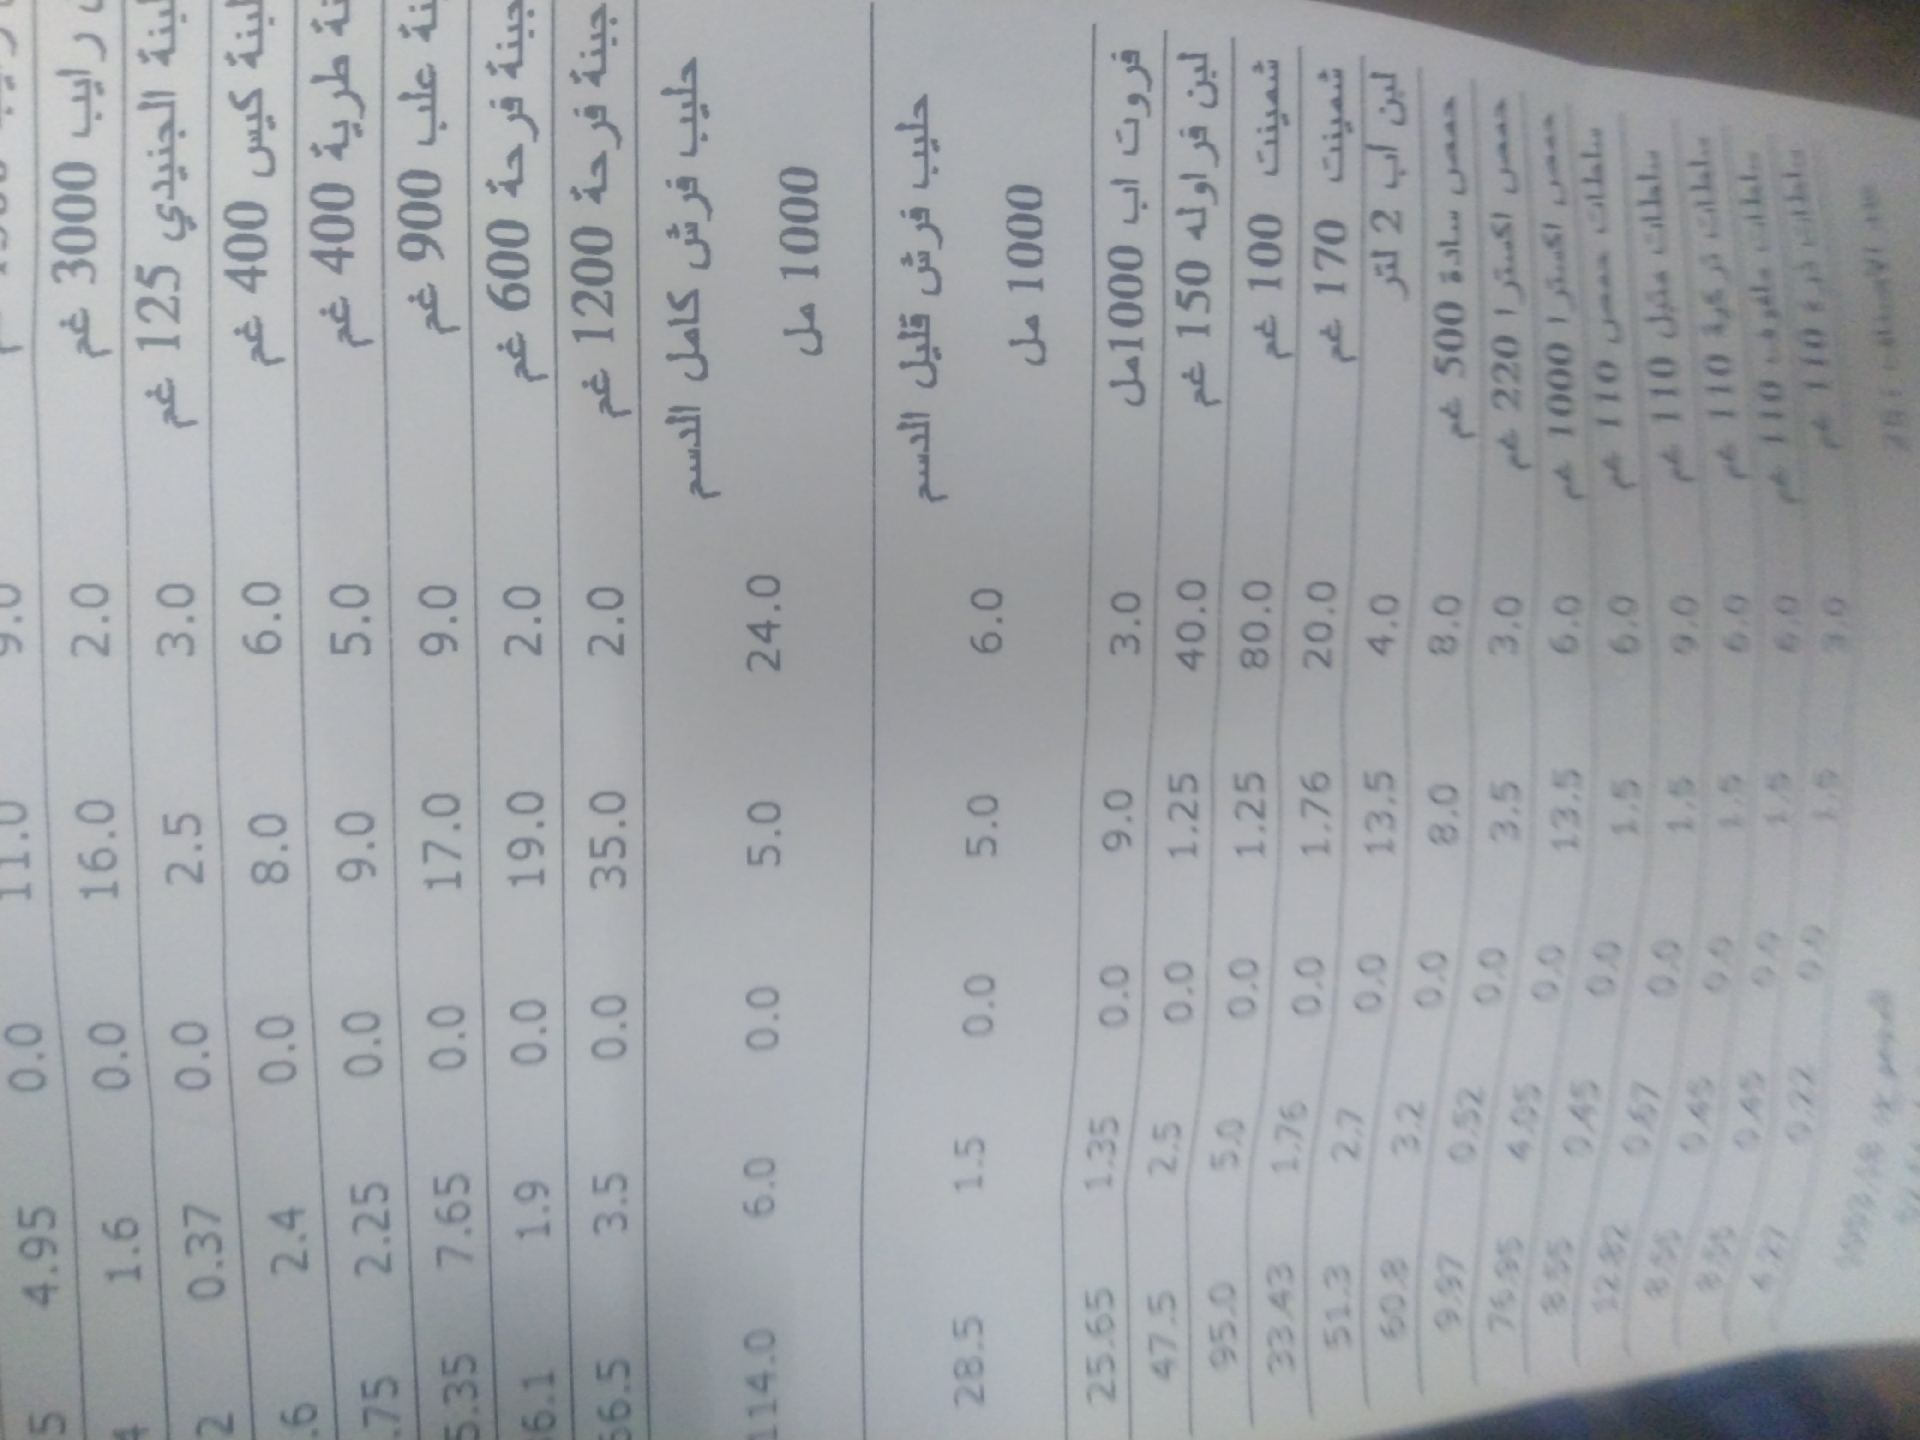 9.0 11.0 0.0 4.95
رايب 3000 غم 2.0 16.0 0.0 1.6
لبنة الجنيدي 125 غم 3.0 2.5 0.0 0.37
لبنة كيس 400 غم 6.0 8.0 0.0 2.4
طرية 400 غم 5.0 9.0 0.0 2.25
علب 900 غم 9.0 17.0 0.0 7.65
جبنة فرحة 600 غم 2.0 19.0 0.0 1.9
جبنة فرحة 1200 غم 2.0 35.0 0.0 3.5
حليب فرش كامل الدسم
1000 مل 24.0 5.0 0.0 6.0 114.0
حليب فرش قليل الدسم
1000 مل 6.0 5.0 0.0 1.5 28.5
فروت اب 1000مل 3.0 9.0 0.0 1.35 25.65
لبن فراوله 150 غم 40.0 1.25 0.0 2.5 47.5
شمينت 100 غم 80.0 1.25 0.0 5.0 95.0
شمينت 170 غم 20.0 1.76 0.0 1.76 33.43
لبن اب 2 لتر 4.0 13.5 0.0 2.7 51.3
حمص سادة 500 غم 8.0 8.0 0.0 3.2 60.8
حمص اكسترا 220 غم 3.0 3.5 0.0 0.52 9.97
حمص اكسترا 1000 غم 6.0 13.5 0.0 4.05 76.95
سلطات حمص 110 غم 6.0 1.5 0.0 0.45 8.55
سلطات متبل 110 غم 9.0 1.5 0.0 0.67 12.82
سلطات تركية 110 غم 6.0 1.5 0.0 0.45 8.55
سلطات ملفوف 110 غم 6.0 1.5 0.0 0.45 8.55
سلطات ذرة 110 غم 3.0 1.5 0.0 0.22 4.27